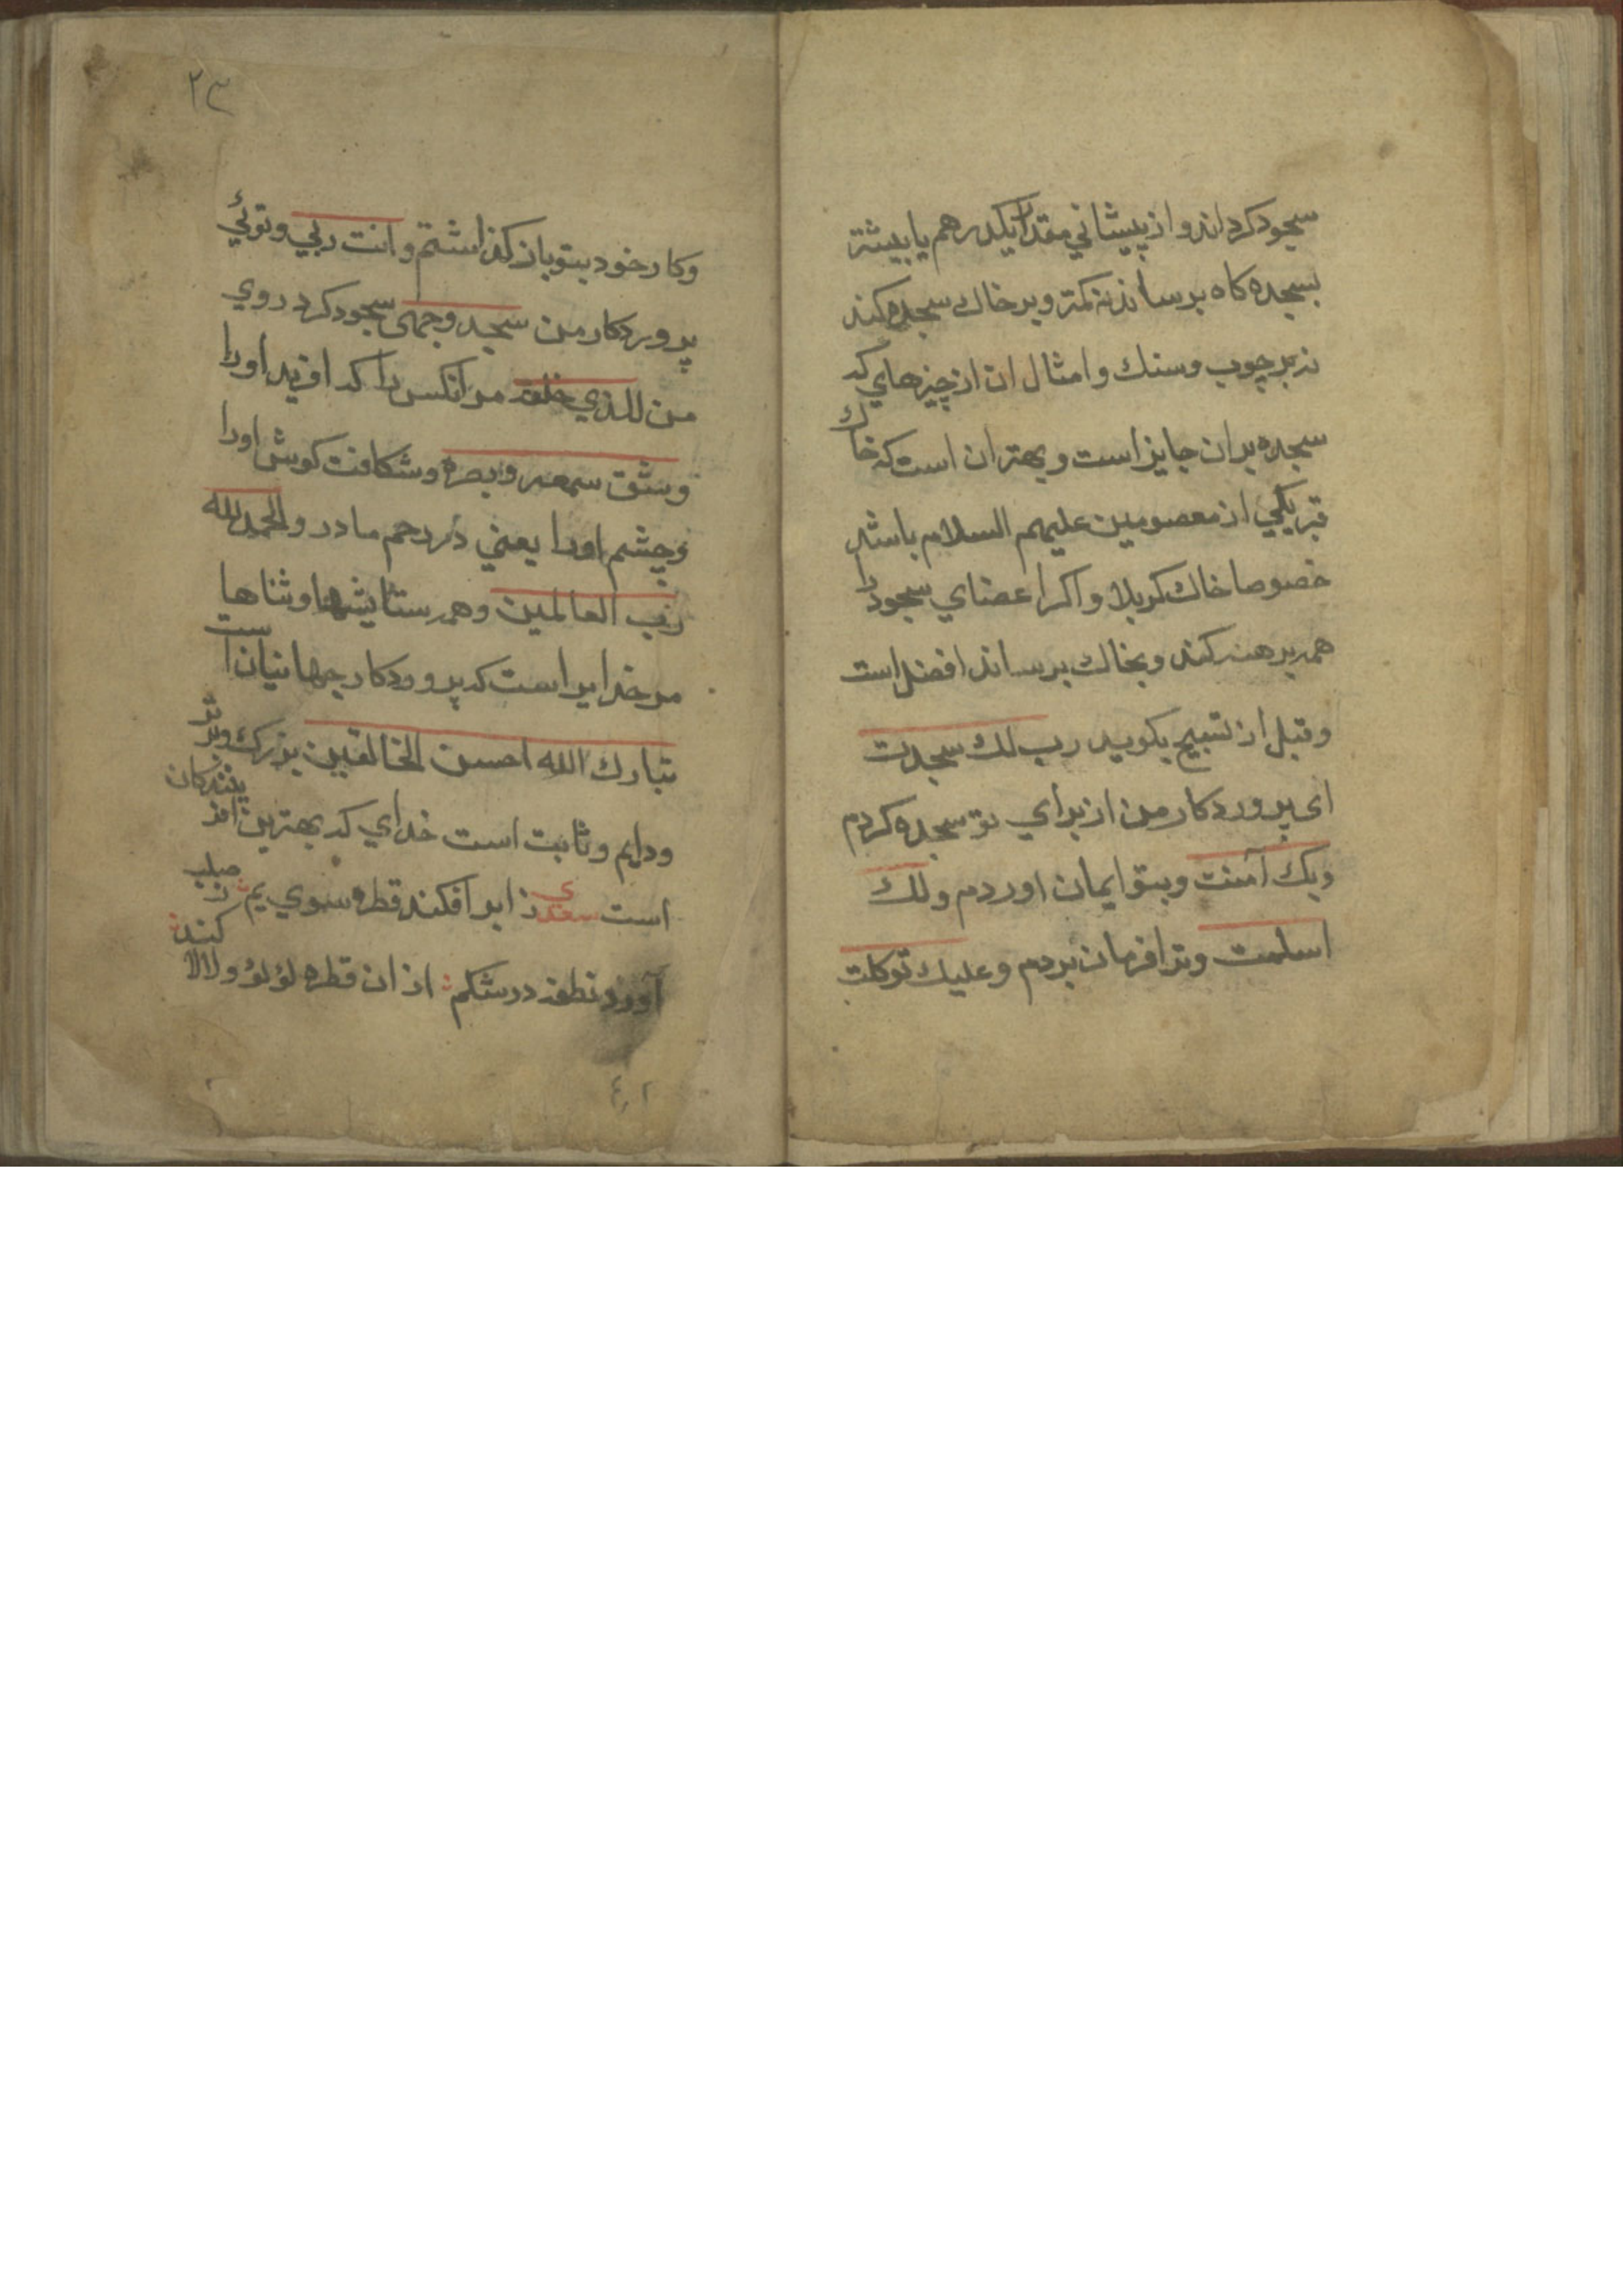 سجود کرد اند و از پیشانی مقدار یکدرهم یا بیشتر
بسجده کاه برساند نه کمتر و بر خاك سجده کند
نه بر چوب و سنك و امثال ان از چیزهای که
سجده بر ان جایز است و بهتر ان است که خاك
قبر یکی از معصومین علیهم السلام باشد
خصوصا خاك کربلا و اکر اعضای سجود را
همه برهنه کند و بخاك برساند افضل است
و قبل از تسبیح بکوید رب لك سجدت
ای پروردکار من از برای تو سجده کردم
وبك آمنت و بتو ایمان اوردم ولك
اسلمت و ترا فرمان بردم و علیك توکلت
۲۳
و کار خود بتو باز کذاشتم و انت ربي و توئي
پروردکار من سجد وجهی سجود کرد روي
من للذي خلقه مر انکس را که افرید اورا
وشق سمعه و بصره و شکافت کوش اورا
و چشم اورا یعني در رحم مادر والحمد لله
رب العالمین و همه ستایشها و ثناها
مر خدایراست که پروردکار جهانیان است
تبارك الله احسن الخالقین بزرك و برتر
و دایم و ثابت است خدای که بهترین افرینندکان
است سعدي ز ابر افکند قطره سوي یم ز صلب
آورد نطفه در شکم از ان قطره لؤلؤ ولالا کند